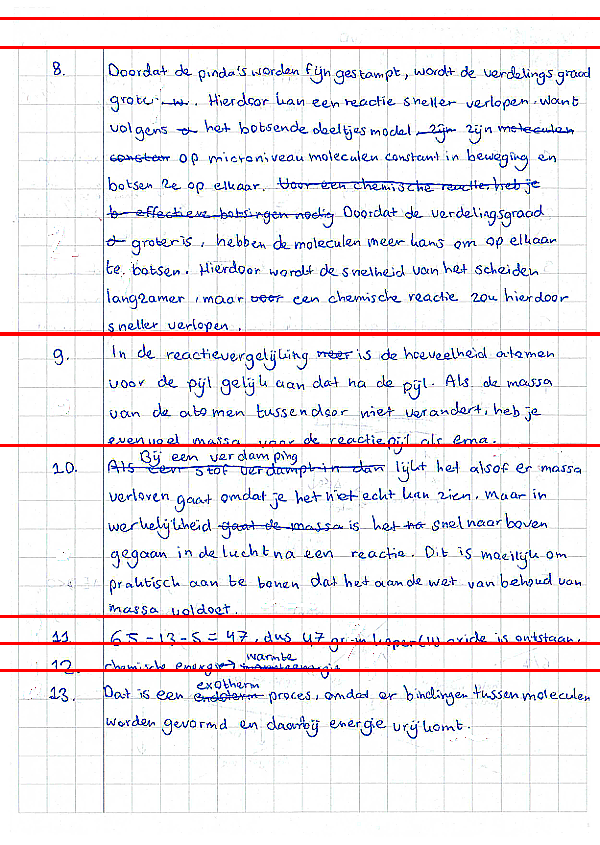 8. Doordat de pinda's worden fijn gestampt, wordt de verdelingsgraad
groter. Hierdoor kan een reactie sneller verlopen. Want
volgens het botsende deeltjes model zijn zijn moleculen
constan op microniveau moleculen constant in beweging en
botsen ze op elkaar. Voor een chemische reactie heb je
effectieve botsingen nodig Doordat de verdelingsgraad
groter is, hebben de moleculen meer kans om op elkaar
te botsen. Hierdoor wordt de snelheid van het scheiden
langzamer, maar voor een chemische reactie zou hierdoor
sneller verlopen.
9. In de reactievergelijking is de hoeveelheid atomen
voor de pijl gelijk aan dat na de pijl. Als de massa
van de atomen tussendoor niet verandert, heb je
evenveel massa voor de reactiepijl als erna.
Bij een verdamping
10. Als een stof verdampt in dan lijkt het alsof er massa
verloren gaat omdat je het niet echt kan zien, maar in
werkelijkheid gaat de massa is het na snel naar boven
gegaan in de lucht na een reactie. Dit is moeilijk om
praktisch aan te tonen dat het aan de wet van behoud van
massa voldoet.
11. 65-13-5 = 47, dus 47 gram koper(II)oxide is ontstaan.
warmte
12. chemische energie →
exotherm
13. Dat is een endotherm proces, omdat er bindingen tussen moleculen
worden gevormd en daarbij energie vrijkomt.